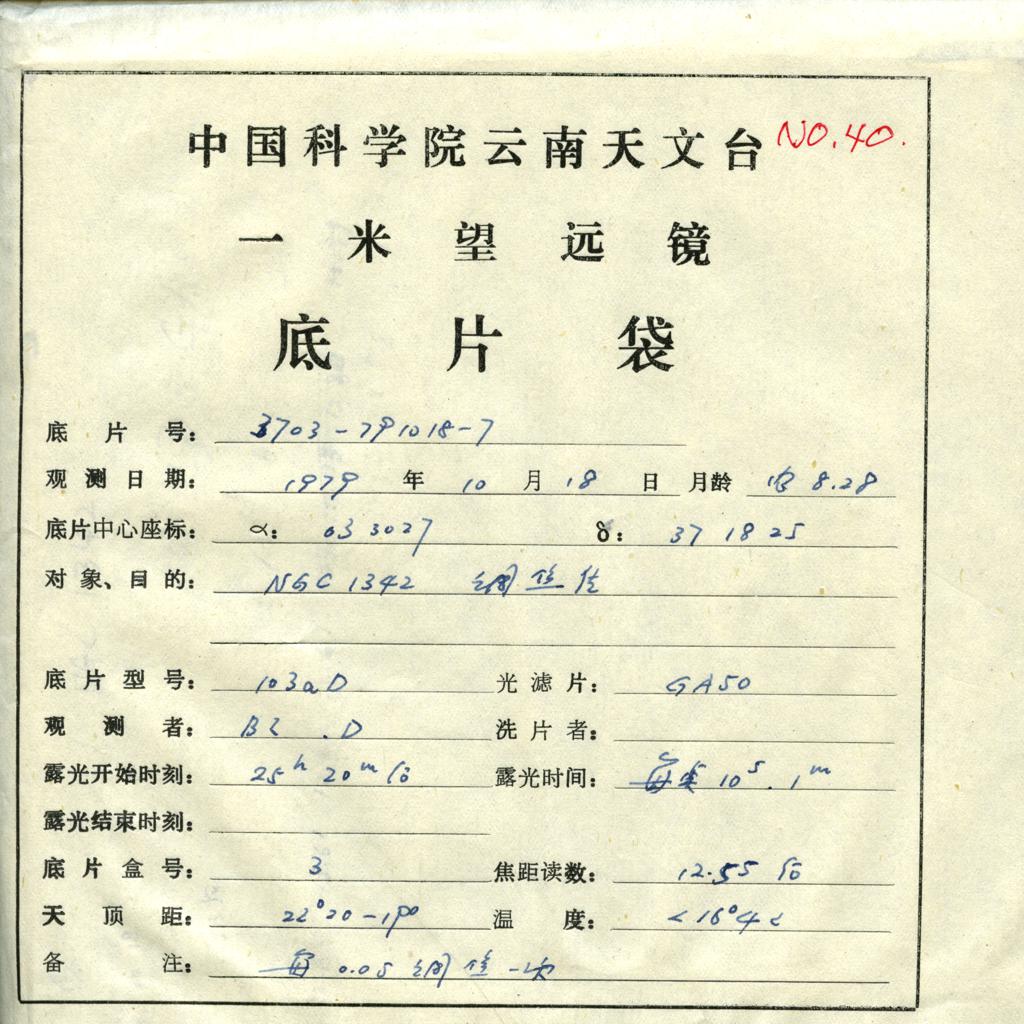 中国科学院云南天文台 NO.40.
一米望远镜
底片袋
底片号: 3703-791018-7
观测日期: 1979年10月18日 月龄 8.28
底片中心座标: α: 033027 δ: 37 18 25
对象、目的: NGC 1342
底片型号: 103aD 光滤片: GA50
观测者: .D 洗片者:
露光开始时刻: 25h 20m 露光时间: 10s . 1m
露光结束时刻:
底片盒号: 3 焦距读数: 12.55
天顶距: 22°20-19° 温度: 16°4
备注: 每 0.05 一次